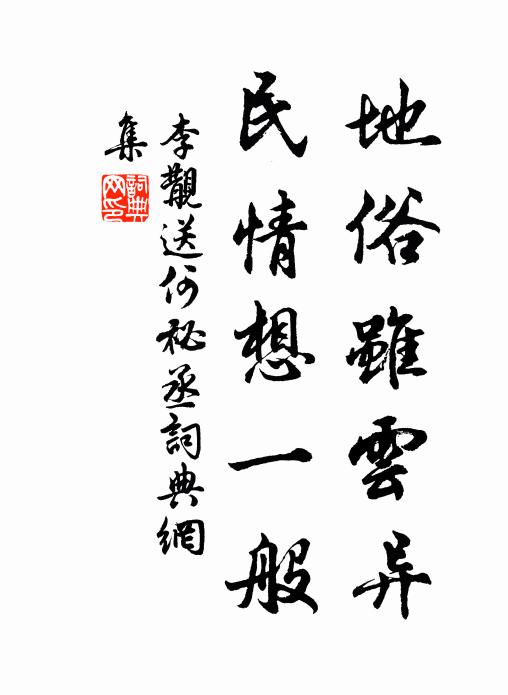 地俗雖雲异
民情想一般
李覯送何祕丞詞典網
集
詞典網印